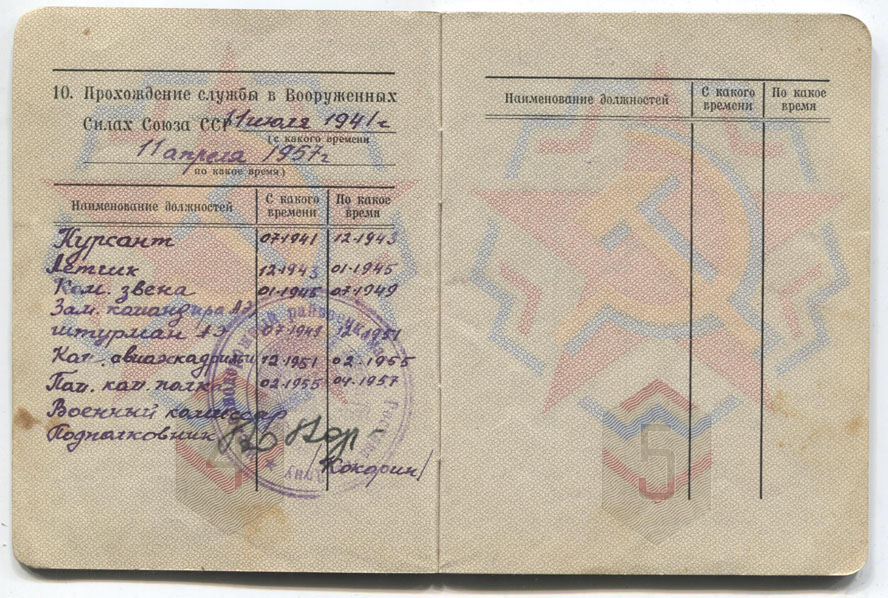 10. Прохождение службы в Вооруженных
Силах Союза ССР 11 июля 1941г
(с какого времени
11 апреля 1957г
по какое время)
Наименование должностей
С какого времени
По какое время
Курсант 07-1941 12-1943
Летчик 12-1943 01-1945
Ком. звена 01-1945 07-1949
Зам. командира АЭ,
штурман АЭ 07-1949 12-1951
Ком. авиаэскадрильи 12-1951 02-1955
Пом. ком. полка 02-1955 04-1957
Военный комиссар
Подполковник
/Кокорин/
4
Наименование должностей
С какого времени
По какое время
5